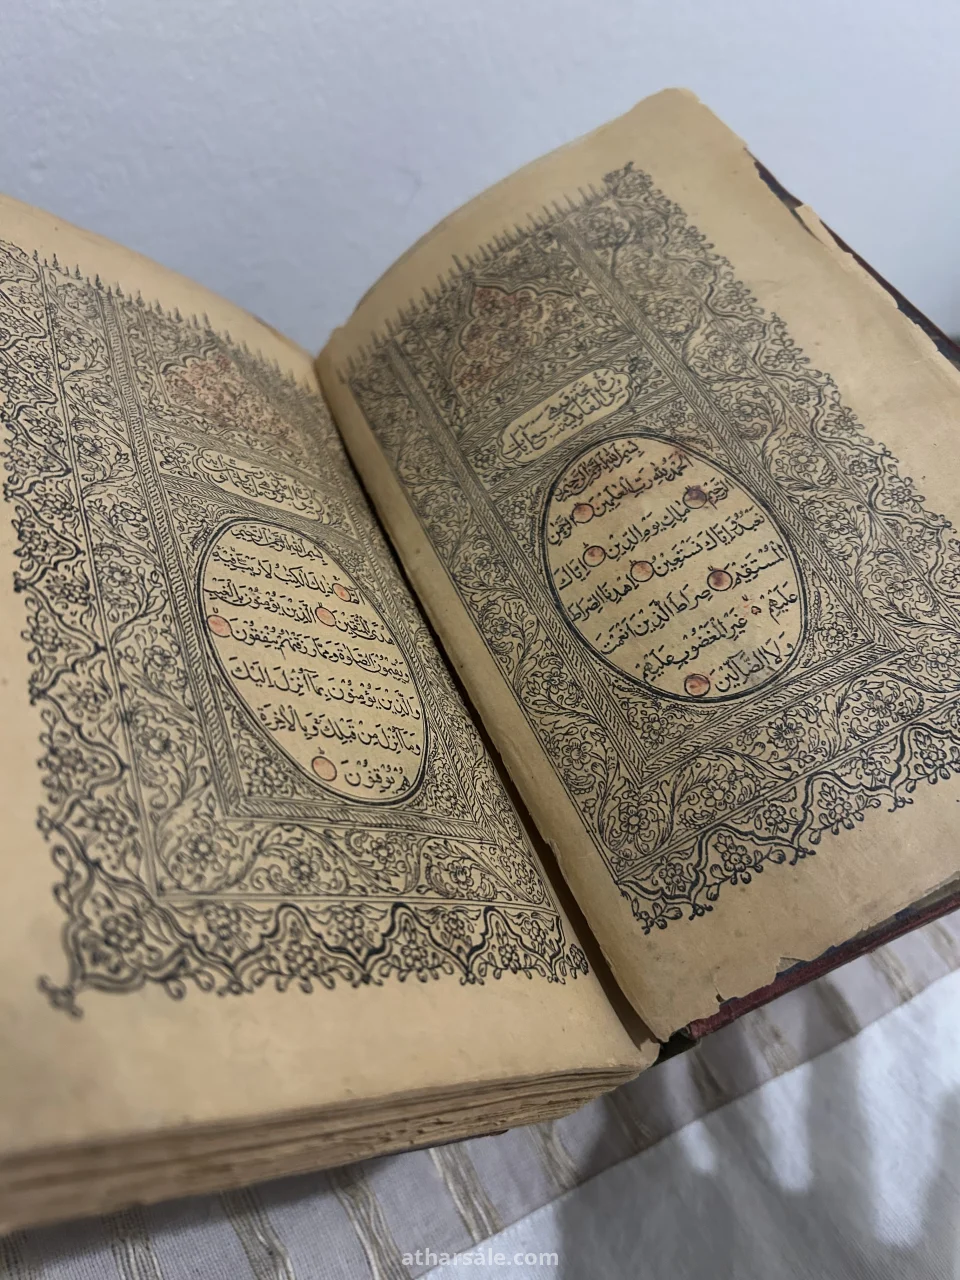 بِسْمِ اللهِ الرَّحْمٰنِ الرَّحِيمِ
اَلْحَمْدُ لِلّٰهِ رَبِّ الْعَالَمِينَ الرَّحْمٰنِ
الرَّحِيمِ مَالِكِ يَوْمِ الدِّينِ اِيَّاكَ
نَعْبُدُ وَاِيَّاكَ نَسْتَعِينُ اِهْدِنَا الصِّرَاطَ
الْمُسْتَقِيمَ صِرَاطَ الَّذِينَ اَنْعَمْتَ
عَلَيْهِمْ غَيْرِ الْمَغْضُوبِ عَلَيْهِمْ
وَلَا الضَّالِّينَ
بِسْمِ اللهِ الرَّحْمٰنِ الرَّحِيمِ
الٓمٓ ذٰلِكَ الْكِتٰبُ لَا رَيْبَ فِيهِ
هُدًى لِلْمُتَّقِينَ الَّذِينَ يُؤْمِنُونَ بِالْغَيْبِ
وَيُقِيمُونَ الصَّلٰوةَ وَمِمَّا رَزَقْنَاهُمْ يُنْفِقُونَ
وَالَّذِينَ يُؤْمِنُونَ بِمَا اُنْزِلَ اِلَيْكَ
وَمَا اُنْزِلَ مِنْ قَبْلِكَ وَبِالْاٰخِرَةِ
هُمْ يُوقِنُونَ
atharsale.com